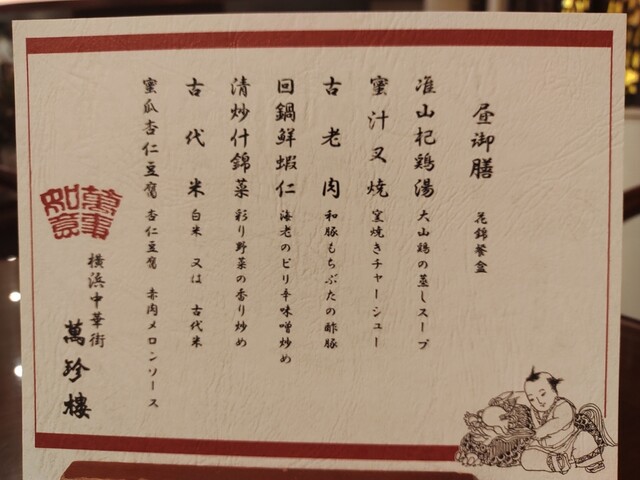 昼御膳 花錦餐盒
准山杞鶏湯 大山鶏の蒸しスープ
蜜汁叉焼 窯焼きチャーシュー
古老肉 和豚もちぶたの酢豚
回鍋鮮蝦仁 海老のピリ辛味噌炒め
清炒什錦菜 彩り野菜の香り炒め
古代米 白米 又は 古代米
蜜瓜杏仁豆腐 杏仁豆腐 赤肉メロンソース
横浜中華街
萬珍樓
萬事
如意